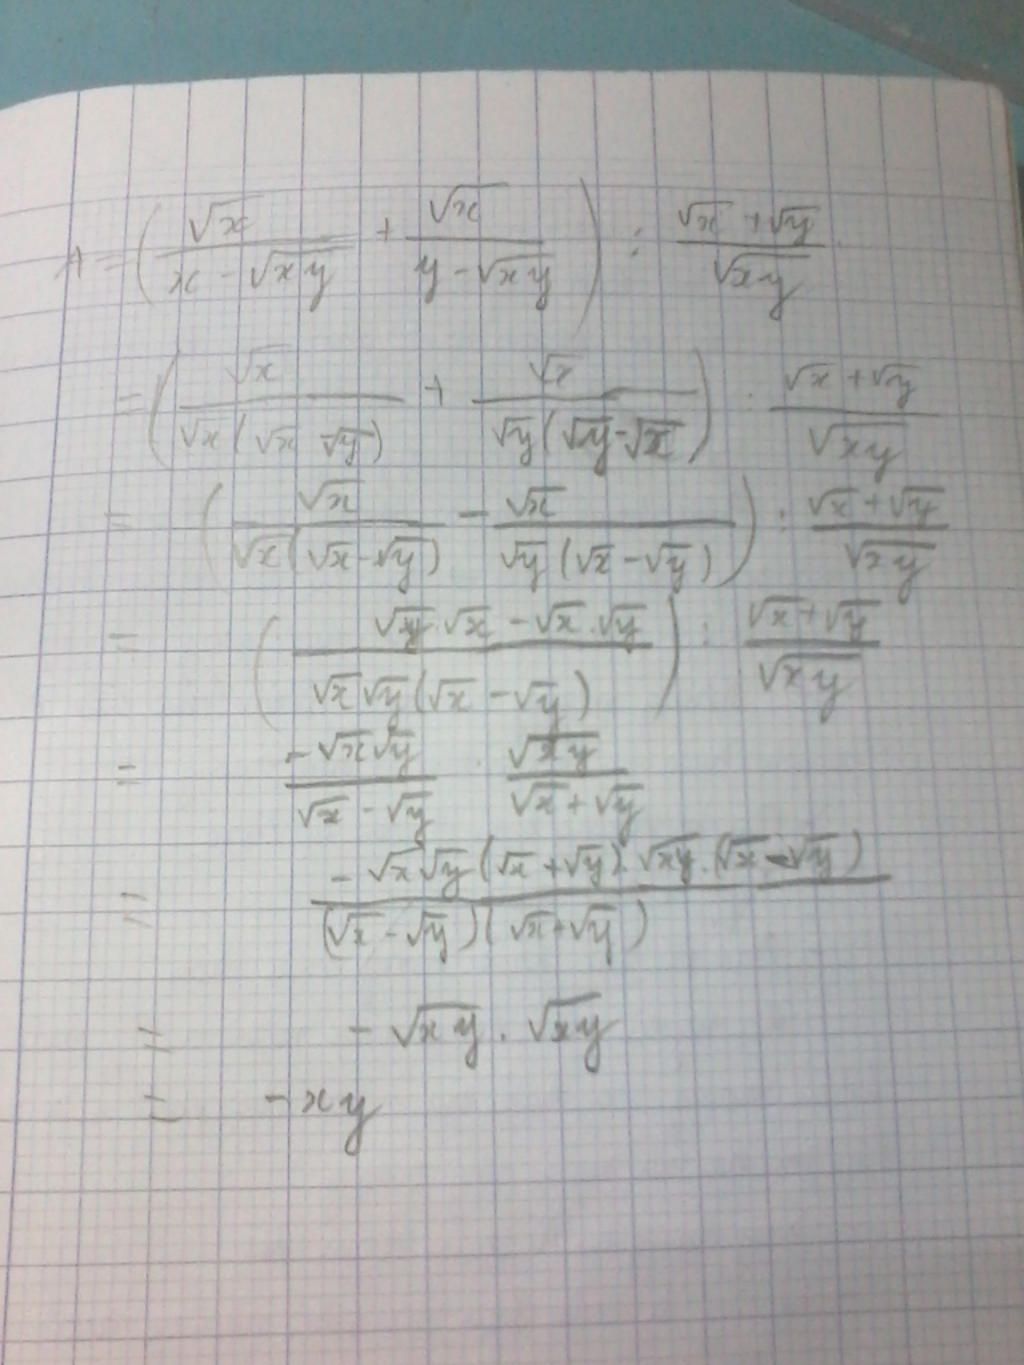 A = ( √x / (x - √xy) + √x / (y - √xy) ) : (√x + √y) / √xy
= ( √x / (√x (√x √y)) + √x / (√y (√y - √x)) ) : (√x + √y) / √xy
= ( √x / (√x (√x - √y)) - √x / (√y (√x - √y)) ) : (√x + √y) / √xy
= ( (√y . √x - √x . √y) / (√x √y (√x - √y)) ) : (√x + √y) / √xy
= (- √x √y) / (√x - √y) . √xy / (√x + √y)
= (- √x √y (√x + √y) . √xy . (√x - √y)) / ((√x - √y) (√x + √y))
= - √xy . √xy
= - xy